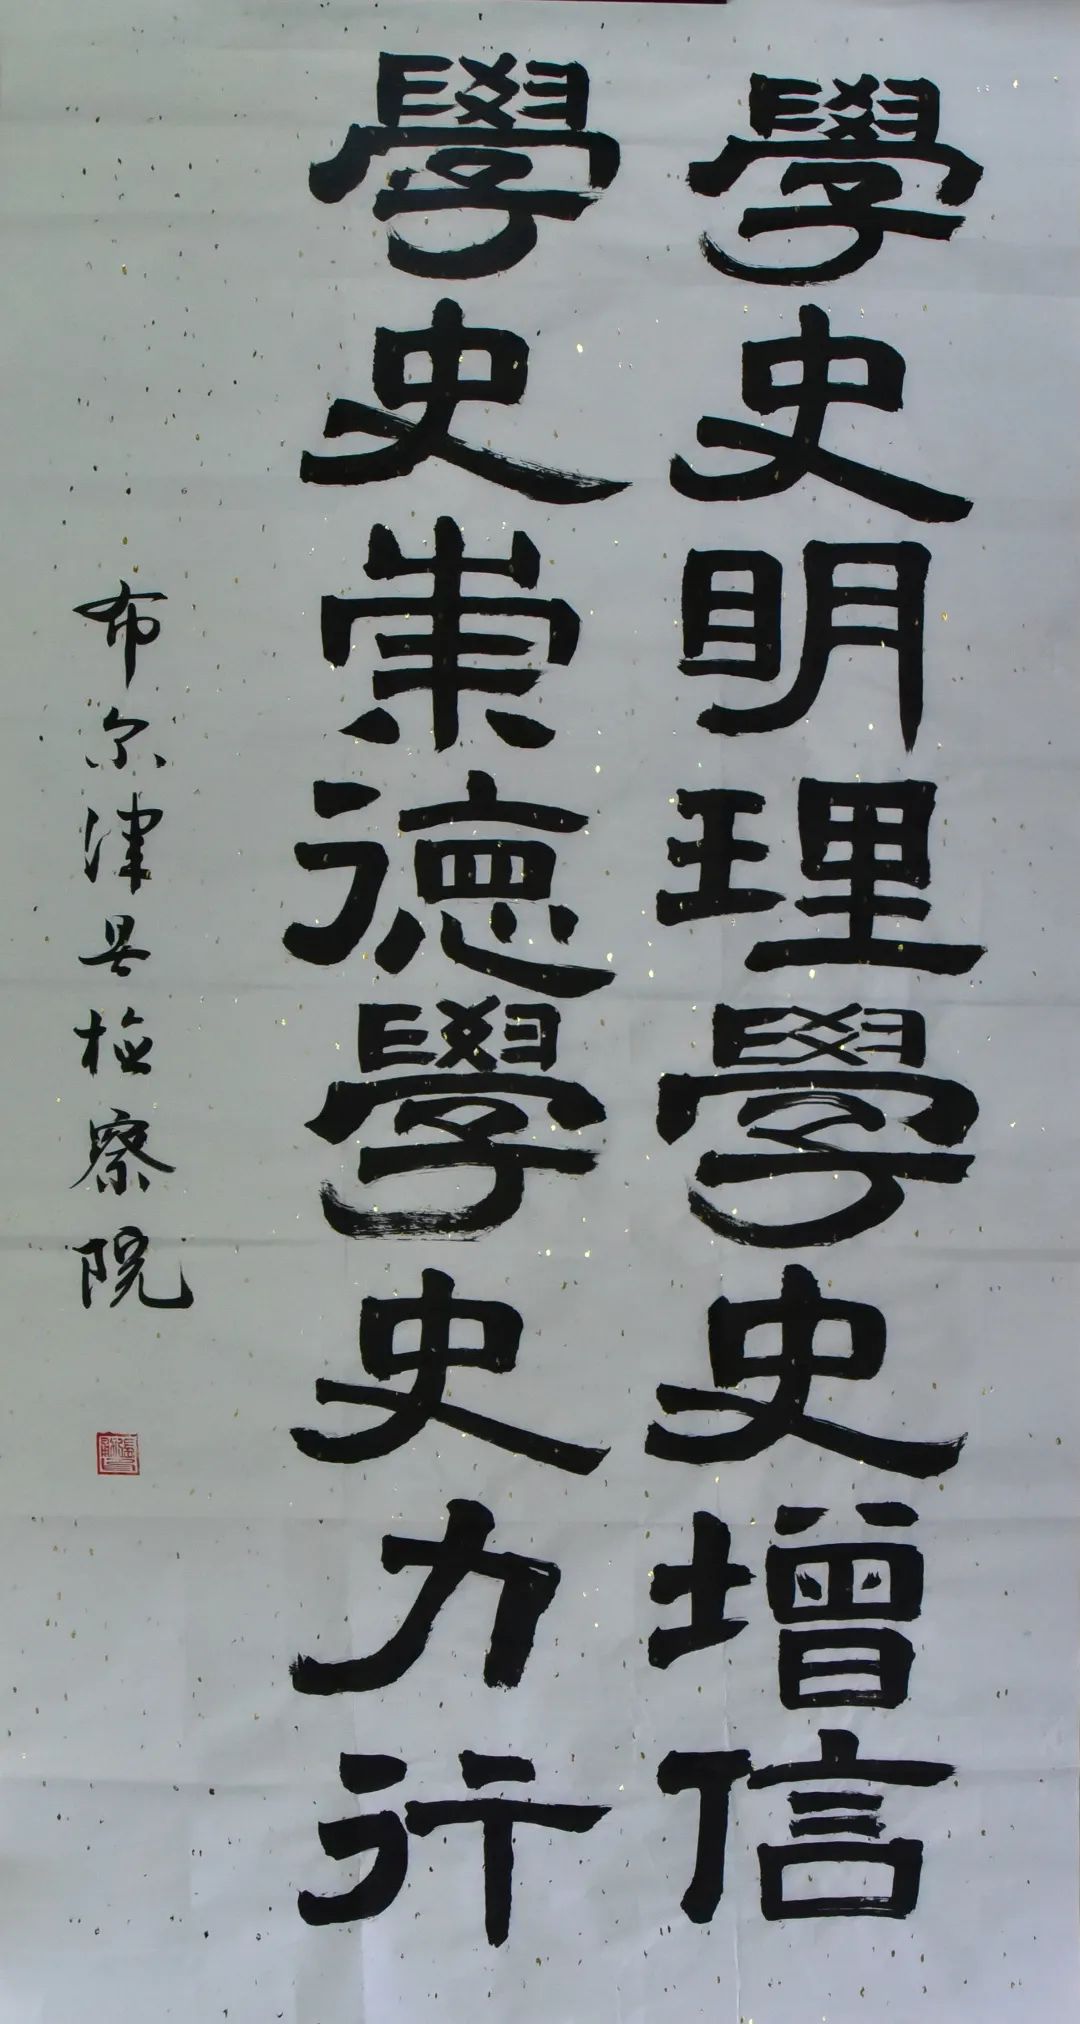 學史明理學史增信
學史崇德學史力行
布尔津县检察院